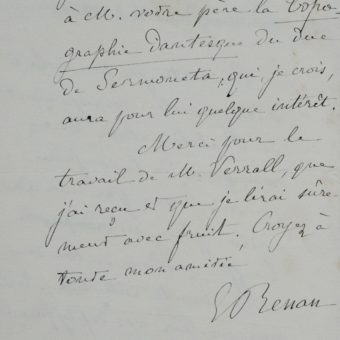 à M. votre père la Topo-
graphie dantesque du duc
de Sermoneta, qui, je crois,
aura pour lui quelque intérêt.
Merci pour le
travail de M. Verrall, que
j'ai reçu et que je lirai sûre
ment avec fruit. Croyez à
toute mon amitié,
E Renan